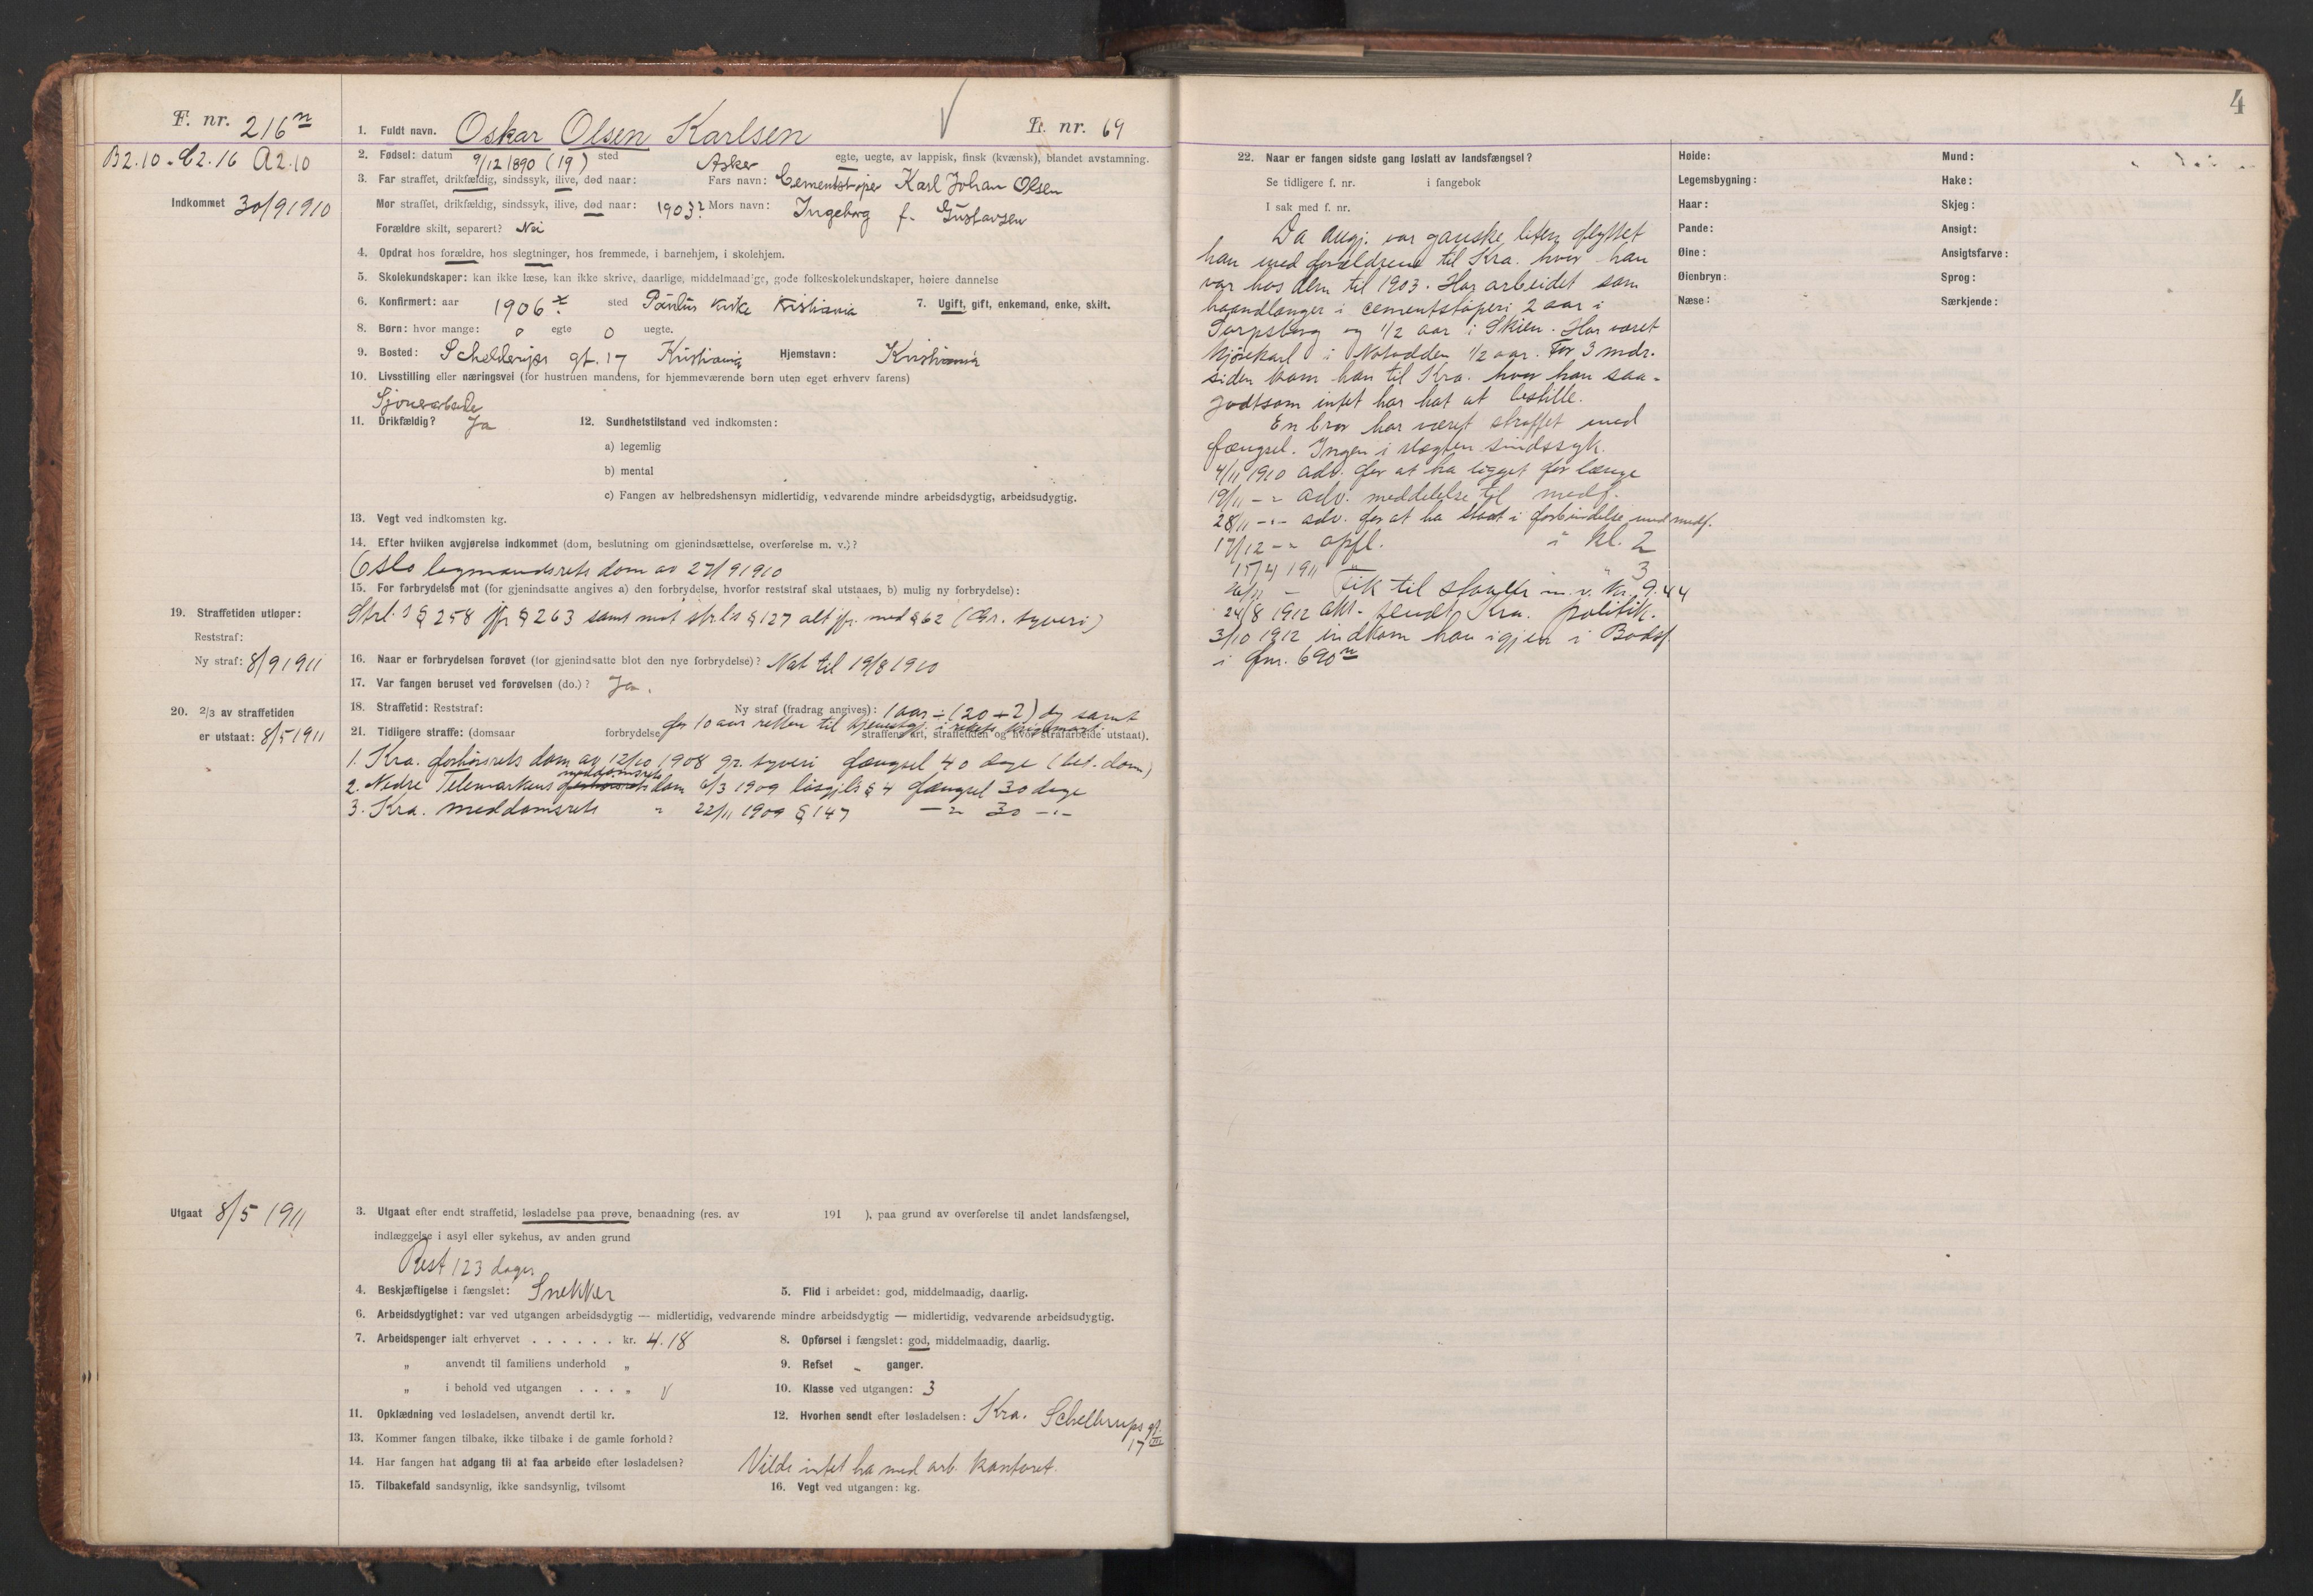 F. nr. 216n
B2.10 - C2.16 A2.10
Indkommet 30/9 1910
19. Straffetiden utløper:
Reststraf:
Ny straf: 8/9 1911
20. 2/3 av straffetiden
er utstaat: 8/5 1911
Utgaat 8/5 1911
1. Fuldt navn. Oskar Olsen Karlsen
R. nr. 69
2. Fødsel: datum 9/12 1890 (19) sted Asker egte, uegte, av lappisk, finsk (kvænsk), blandet avstamning.
3. Far straffet, drikfældig, sindssyk, ilive, død naar: Fars navn: Cementstøper Karl Johan Olsen
Mor straffet, drikfældig, sindssyk, ilive, død naar: 1903? Mors navn: Ingeborg f. Gustavsen
Forældre skilt, separert? Nei
4. Opdrat hos forældre, hos slegtninger, hos fremmede, i barnehjem, i skolehjem.
5. Skolekundskaper: kan ikke læse, kan ikke skrive, daarlige, middelmaadige, gode folkeskolekundskaper, høiere dannelse
6. Konfirmert: aar 1906 sted Paulus kirke Kristiania 7. Ugift, gift, enkemand, enke, skilt.
8. Børn: hvor mange: 0 egte 0 uegte.
9. Bosted: gt. 17 Kristiania Hjemstavn: Kristiania
10. Livsstilling eller næringsvei (for hustruen mandens, for hjemmeværende børn uten eget erhverv farens)
11. Drikfældig? Ja 12. Sundhetstilstand ved indkomsten:
a) legemlig
b) mental
c) Fangen av helbredshensyn midlertidig, vedvarende mindre arbeidsdygtig, arbeidsudygtig.
13. Vegt ved indkomsten kg.
14. Efter hvilken avgjørelse indkommet (dom, beslutning om gjenindsættelse, overførelse m. v.)?
Oslo lagmandsrets dom av 27/9 1910
15. For forbrydelse mot (for gjenindsatte angives a) den forbrydelse, hvorfor reststraf skal utstaaes, b) mulig ny forbrydelse):
Strl. s § 258 jfr § 263 samt mot strl.s § 127 alt jfr. med § 62 (Gr. tyveri)
16. Naar er forbrydelsen forøvet (for gjenindsatte blot den nye forbrydelse)? Nat til 19/8 1910
17. Var fangen beruset ved forøvelsen (do.)? Ja.
18. Straffetid: Reststraf: Ny straf (fradrag angives): 1 aar ÷ (20 + 2) dg samt
for 10 aar retten til tjenestgj. i rikets krigsmagt.
21. Tidligere straffe: (domsaar forbrydelse straffens art, straffetiden og hvor strafarbeide utstaat).
1. Kra. forhørsrets dom av 12/10 1908 gr. tyveri fængsel 40 dage (bet. dom)
2. Nedre Telemarkens forhørsrets meddomsrets dom 6/3 1909 løsgjls § 4 fængsel 30 dage
3. Kra. meddomsrets " 22/11 1909 § 147 -"- 30 -"-
3. Utgaat efter endt straffetid, løsladelse paa prøve, benaadning (res. av 191 ), paa grund av overførelse til andet landsfængsel,
indlæggelse i asyl eller sykehus, av anden grund
Rest 123 dager
4. Beskjæftigelse i fængslet: Snekker 5. Flid i arbeidet: god, middelmaadig, daarlig.
6. Arbeidsdygtighet: var ved utgangen arbeidsdygtig — midlertidig, vedvarende mindre arbeidsdygtig — midlertidig, vedvarende arbeidsudygtig.
7. Arbeidspenger ialt erhvervet . . . . . . kr. 4.18 8. Opførsel i fængslet: god, middelmaadig, daarlig.
„ anvendt til familiens underhold „ 9. Refset - ganger.
„ i behold ved utgangen . . . „ 10. Klasse ved utgangen: 3
11. Opklædning ved løsladelsen, anvendt dertil kr. 12. Hvorhen sendt efter løsladelsen: Kra. Schelterups gt.
17 III
13. Kommer fangen tilbake, ikke tilbake i de gamle forhold?
14. Har fangen hat adgang til at faa arbeide efter løsladelsen? Vilde intet ha med arb. kontoret.
15. Tilbakefald sandsynlig, ikke sandsynlig, tvilsomt 16. Vegt ved utgangen: kg.
4
22. Naar er fangen sidste gang løslatt av landsfængsel?
Se tidligere f. nr. i fangebok
I sak med f. nr.
Da angj. var ganske liten flyttet
han med forældrene til Kra. hvor han
var hos dem til 1903. Har arbeidet som
haandlanger i cementstøperi 2 aar i
Sarpsborg og 1/2 aar i Skien. Har været
kjørekarl i Notodden 1/2 aar. For 3 mdr.
siden kom han til Kra. hvor han saa-
godtsom intet har hat at bestille.
En bror har været straffet med
fængsel. Ingen i slegten sindssyk.
4/11 1910 adv. for at ha ligget for længe
19/11 -"- adv. meddelelse til medf.
28/11 -"- adv. for at ha staat i forbindelse med medf.
17/12 -"- opfl. i kl. 2
17/4 1911 " " 3
Fik til støvler m. v. kr. 9.44
24/8 1912 akt. sendt Kra. politik.
3/10 1912 indkom han igjen i Bodsf.
i fnr. 690n
Høide:
Legemsbygning:
Haar:
Pande:
Øine:
Øienbryn:
Næse:
Mund:
Hake:
Skjeg:
Ansigt:
Ansigtsfarve:
Sprog:
Særkjende: